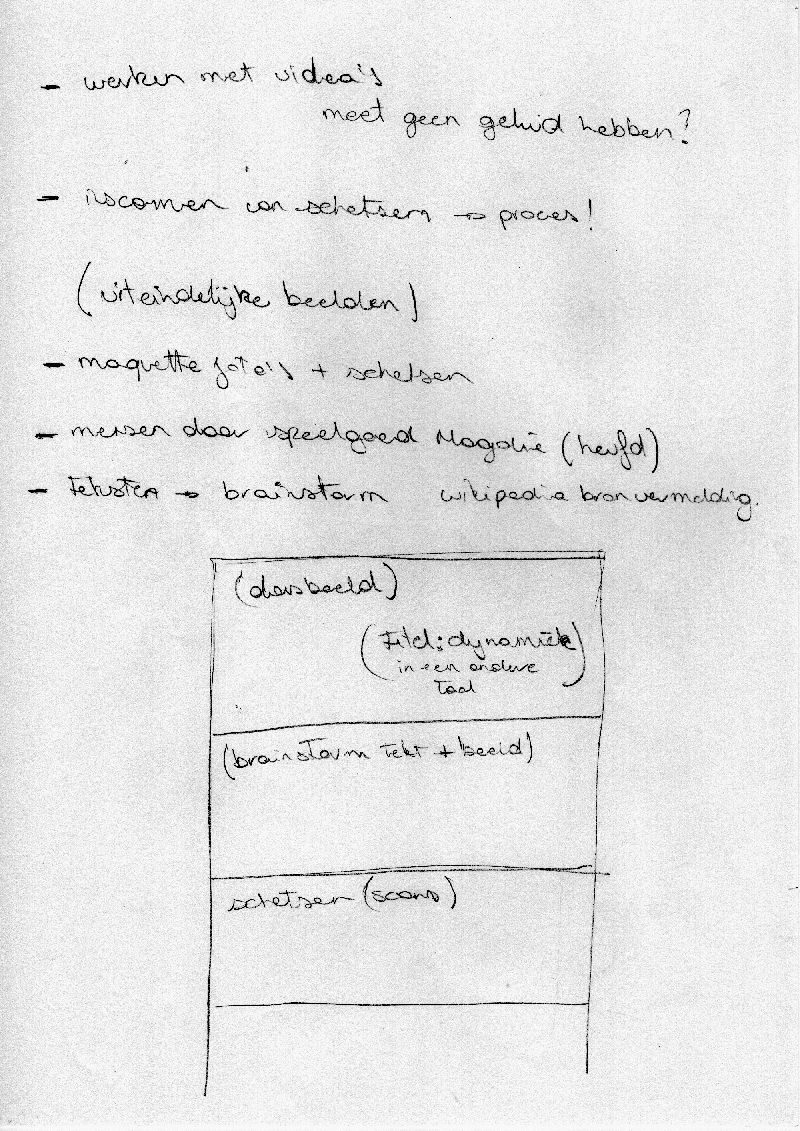 - werken met video's
meet geen geluid hebben?
- inscannen van schetsen → proces!
(uiteindelijke beelden)
- maquette foto's + schetsen
- mensen door speelgoed (hoofd)
- teksten → brainstorm wikipedia bronvermelding.
(beeld)
(titel: dynamiek
in een andere
taal
(brainstorm tekst + beeld)
schetsen (scans)